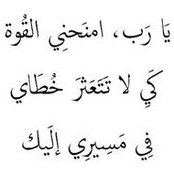 يَا رَب، امنَحنِي القُوة
كَي لا تَتَعَثرَ خُطَاي
فِي مَسِيرِي إلَيك